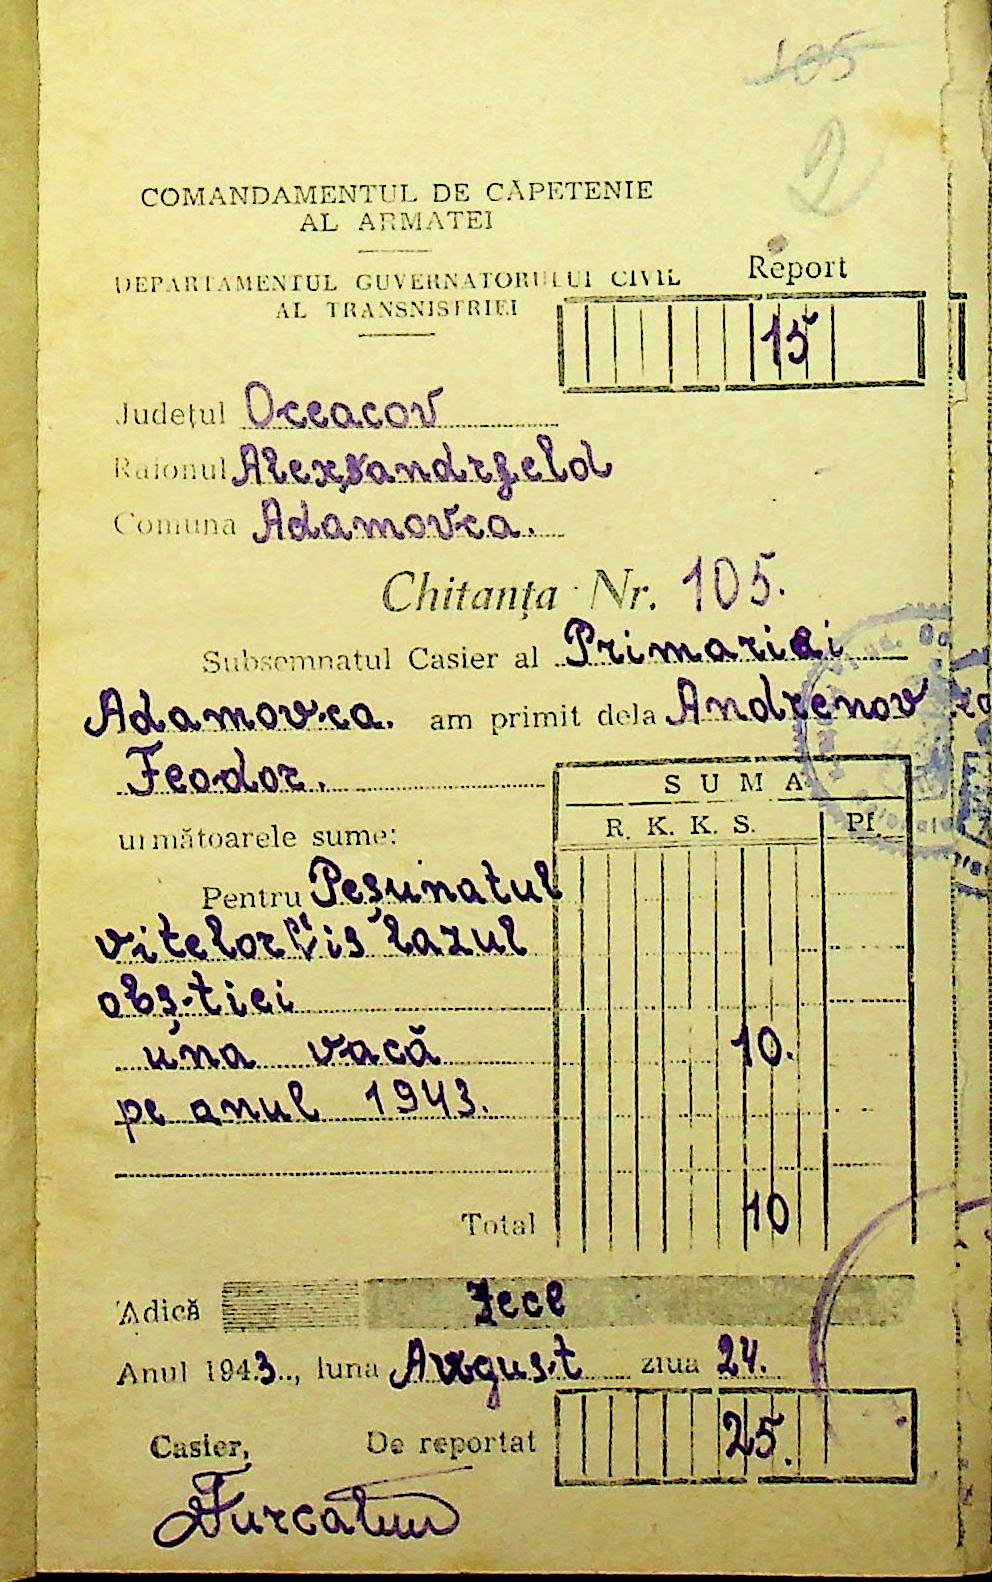 105
2
COMANDAMENTUL DE CĂPETENIE
AL ARMATEI
DEPARTAMENTUL GUVERNATORULUI CIVIL
AL TRANSNISTRIEI
Report
15
Județul Oceacov
Raionul Alexsandrfeld
Comuna Adamovca.
Chitanța Nr. 105.
Subsemnatul Casier al Primariei
Adamovca. am primit dela Andrenov
Feodor.
SUMA
R. K. K. S. Pf.
următoarele sume:
Pentru Peșunatul
vitelor is lazul
obș-tiei
una vacă 10.
pe anul 1943.
Total 10
Adică Zece
Anul 1943.., luna August ziua 24.
Casier, De reportat 25.